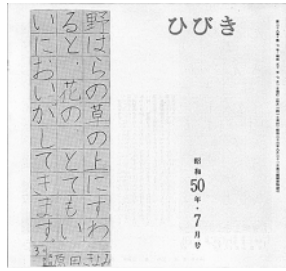 ひびき
昭和50年・7月号
野はらの草の上にすわ
ると、花の、とてもい
いにおいがしてきます。
原田